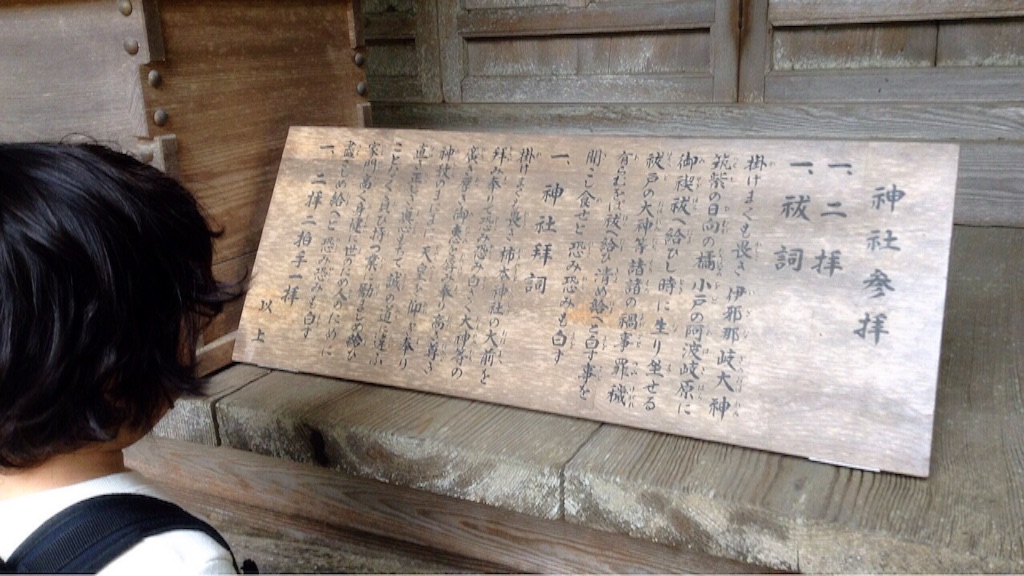 神社参拝
一、二拝
一、祓詞
掛けまくも畏き 伊邪那岐大神
筑紫の日向の橘 小戸の阿波岐原に
御禊祓へ給ひし時に生り坐せる
祓戸の大神等 諸諸の禍事罪穢
有らむをば祓へ給ひ清め給へと白す事を
聞こし食せと 恐み恐みも白す
一、神社拝詞
掛けまくも畏き 柿本神社の大前を
拝み奉りて 恐み恐みも白さく 大神等の
広き厚き御恵を辱み奉り 高き尊き
神教のまにまに 天皇を仰ぎ奉り
直き正しき真心もちて 誠の道に違ふ
ことなく 負ひ持つ業に励ましめ給ひ
家門高く 身健に 世のため人のために
盡さしめ給へと 恐み恐みも白す
一、二拝二拍手一拝
以上